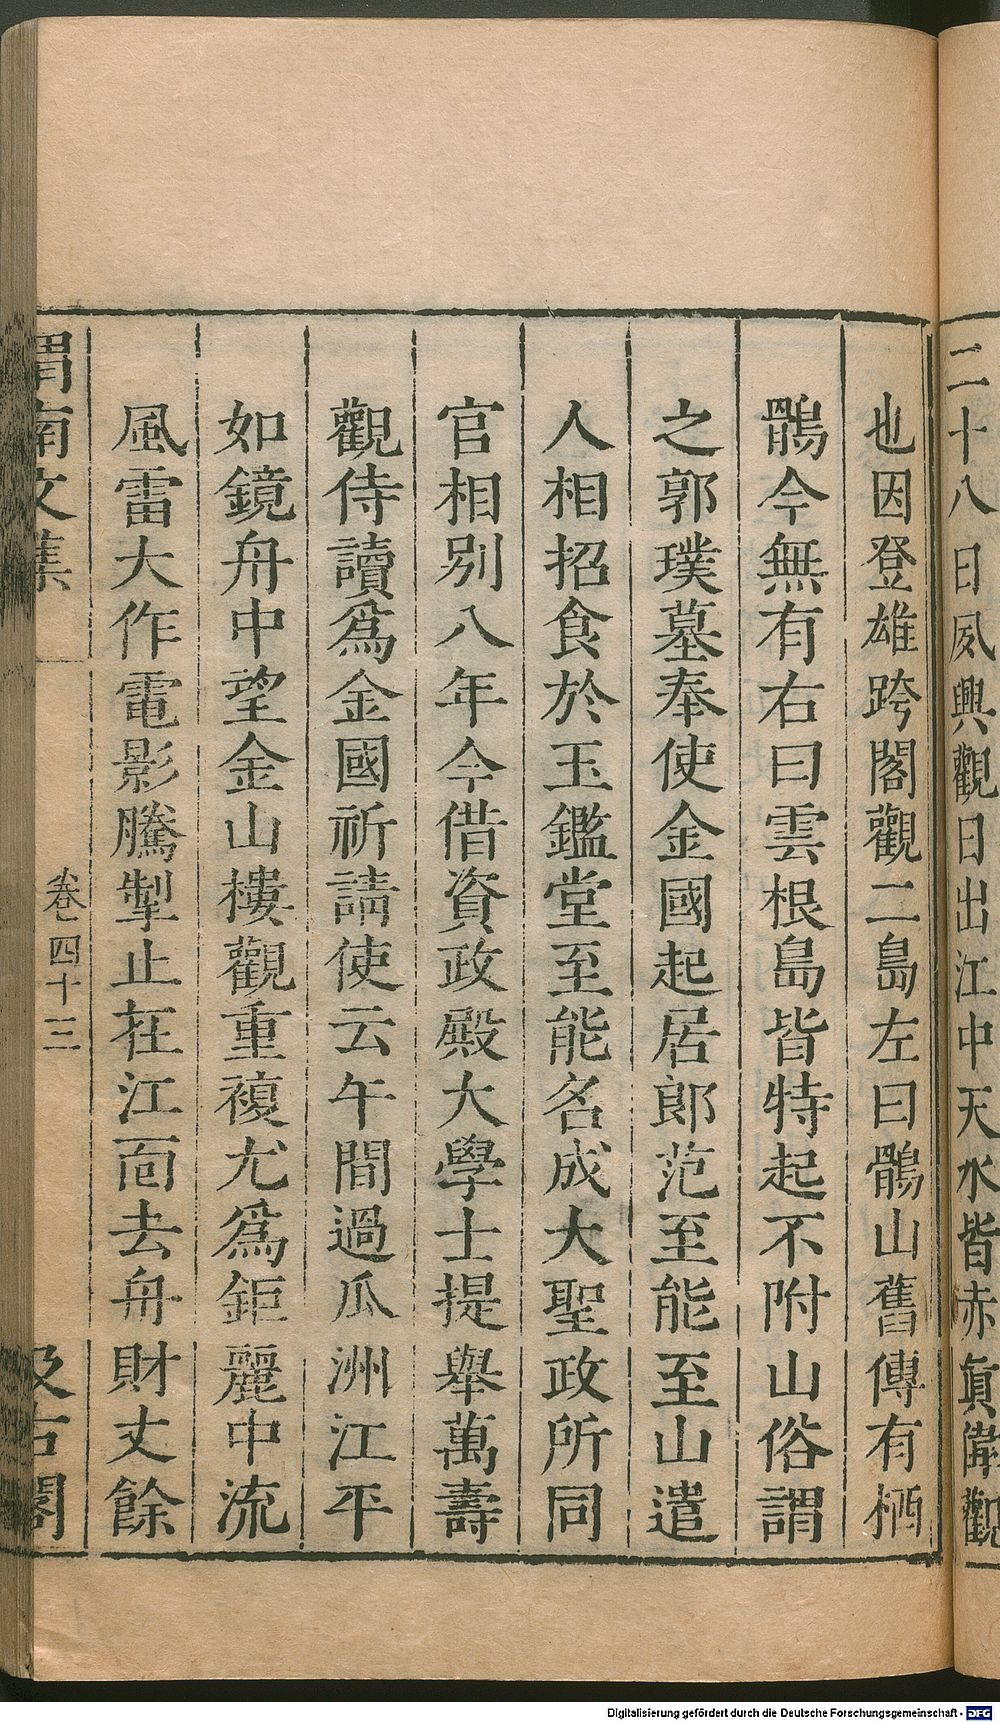 二十八日夙興觀日出江中天水皆赤眞偉觀
也因登雄跨閣觀二島左曰鶻山舊傳有栖
鶻今無有右曰雲根島皆特起不附山俗謂
之郭璞墓奉使金國起居郎范至能至山遣
人相招食於玉鑑堂至能名成大聖政所同
官相別八年今借資政殿大學士提舉萬壽
觀侍讀爲金國祈請使云午間過瓜洲江平
如鏡舟中望金山樓觀重複尤爲鉅麗中流
風雷大作電影騰掣止在江面去舟財丈餘
渭南文集
卷四十三
汲古閣
Digitalisierung gefördert durch die Deutsche Forschungsgemeinschaft - DFG